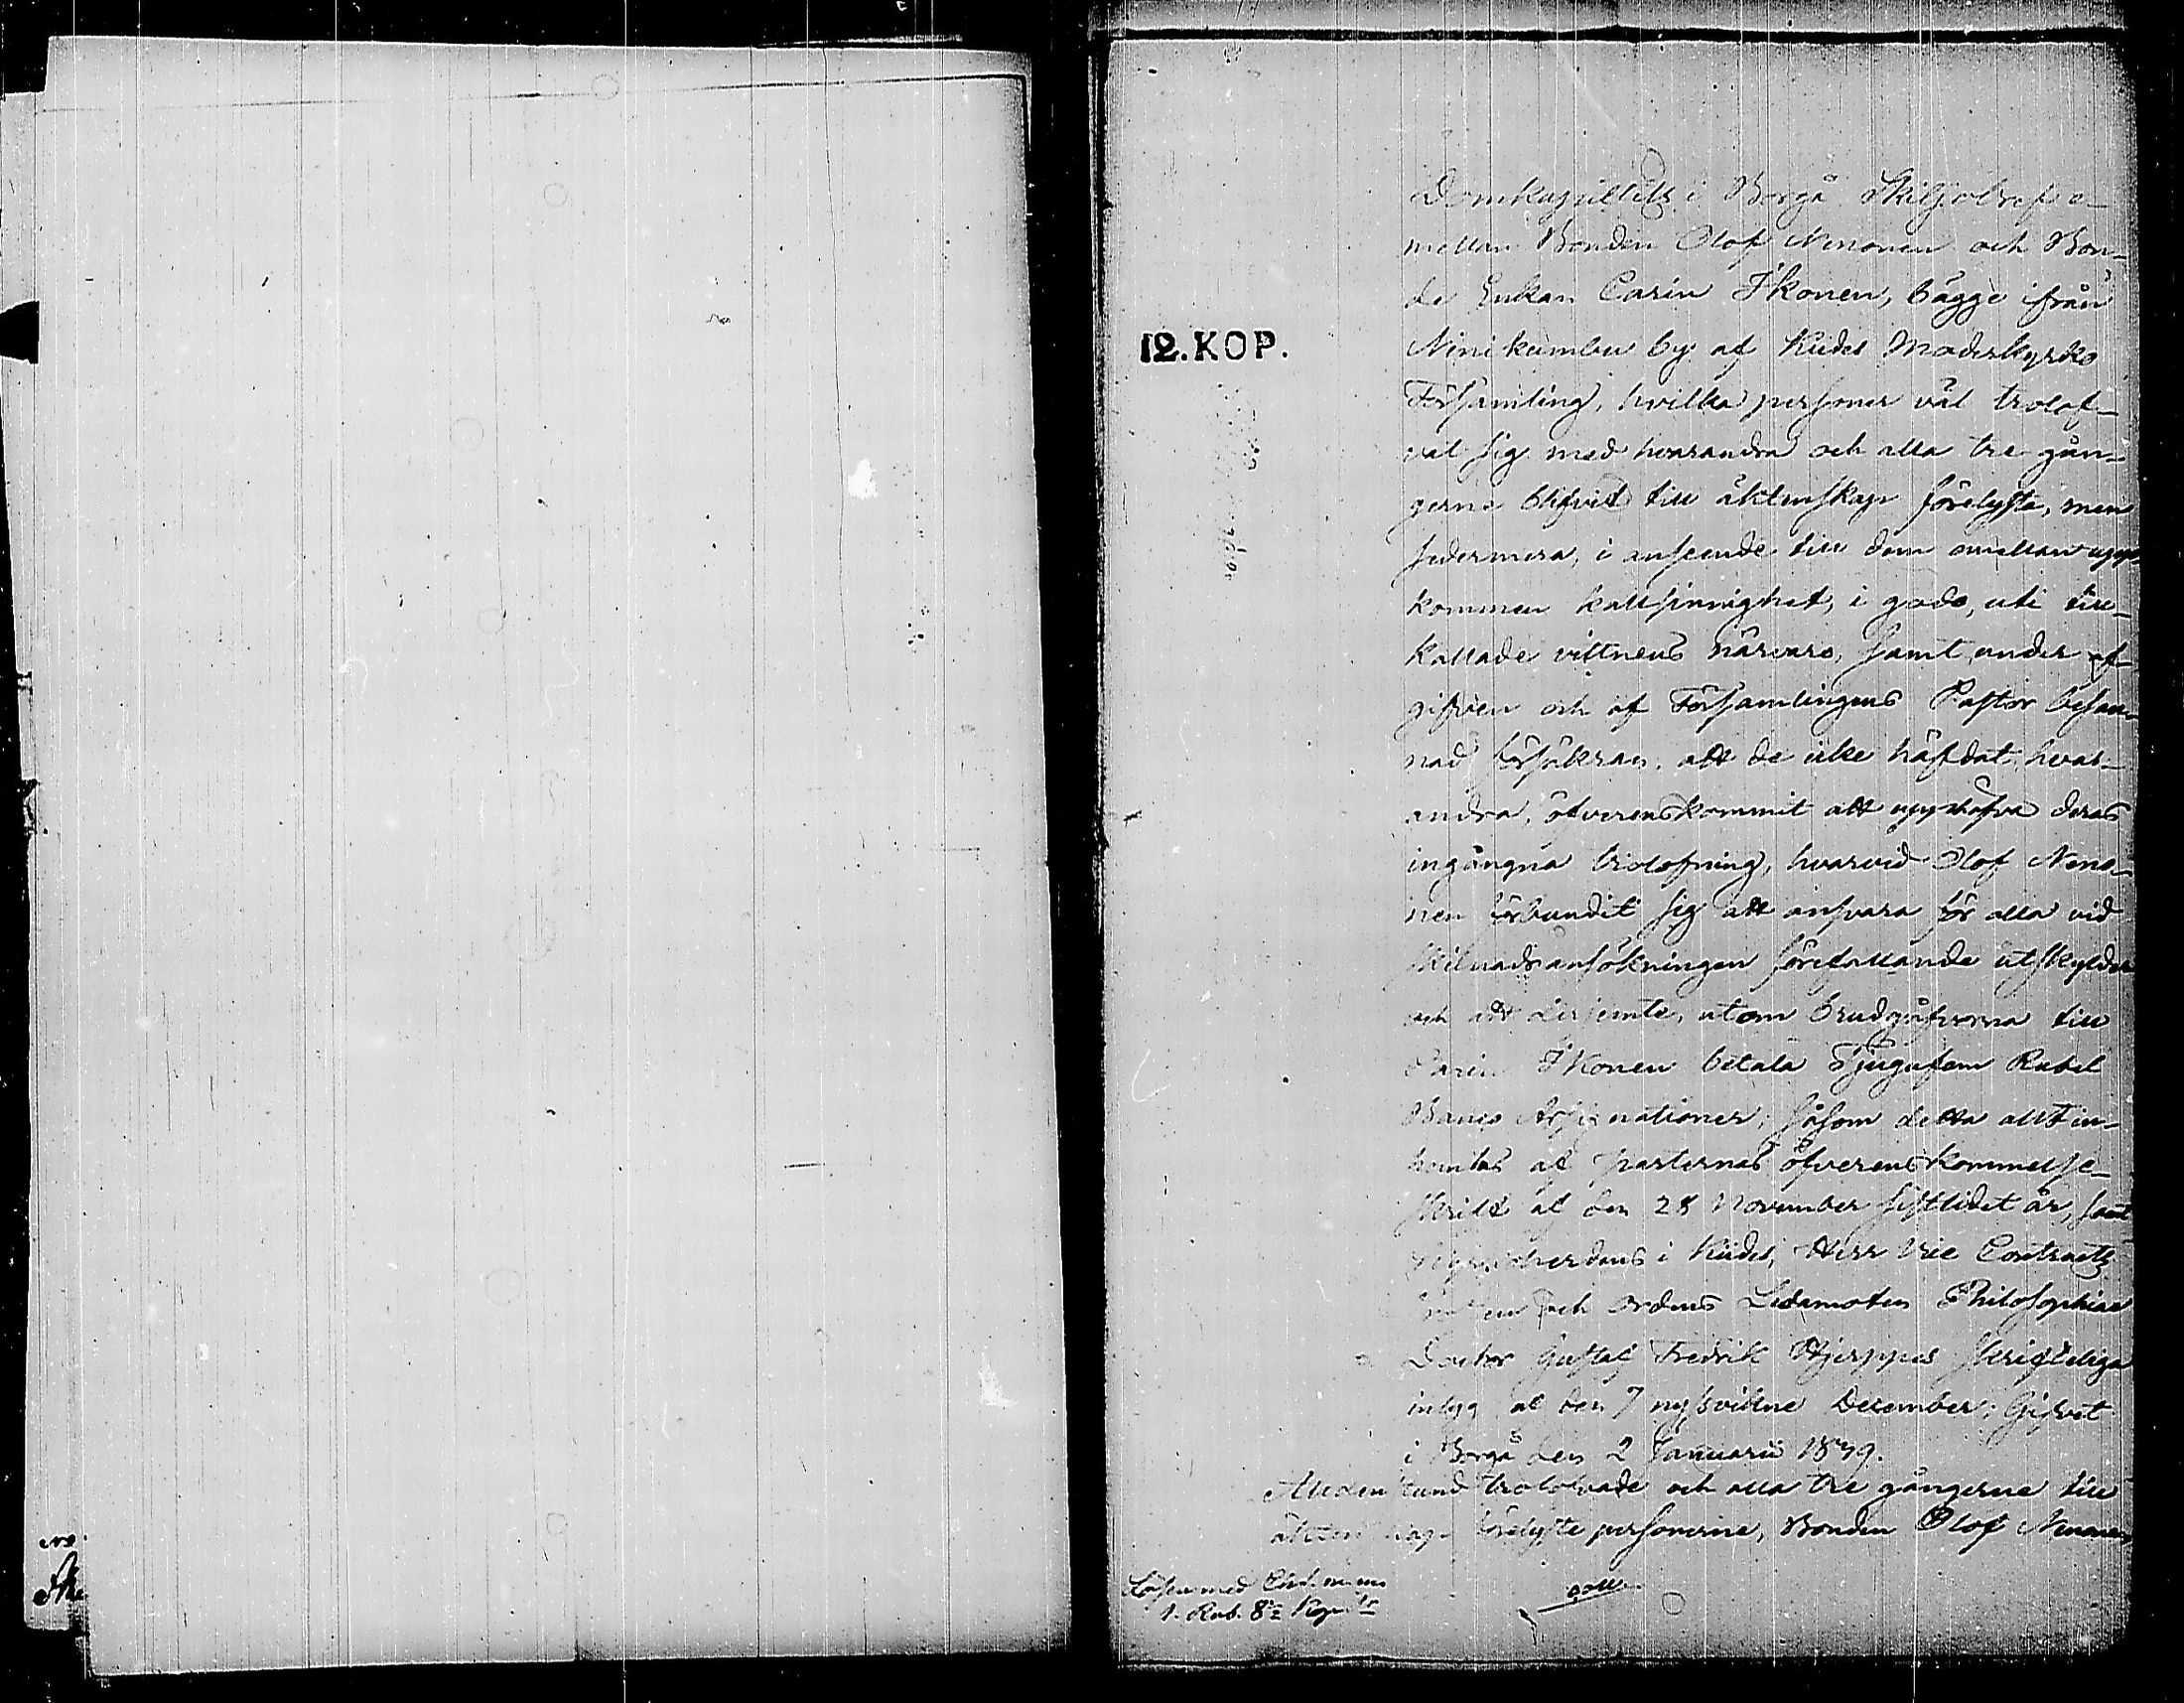 Domkapitlets i Borgå Skiljobref e-
mellan Bonden Olof Nenonen och Bon-
de Enkan Carin Ikonen, bägge ifrån
Niinikumbu by af Kides Moderkyrko
Församling, hvilka personer väl trolof-
vat sig med hvarandra och alla tre gån-
gerne blifvit till äktenskap förelyste, men
sedermera, i anseende till dem emellan upp-
kommen kallsinnighet, i godo, uti till-
kallade vittnens närvaro, samt under af-
gifven och af Församlingens Pastor besan-
nad försäkran, att de icke häfdat hvar-
andra, öfverenskommit att upphäfva deras
ingångna trolofning, hvarvid Olof Neno-
nen förbundit sig att ansvara för alla vid
skilnadsansökningen förefallande utskylder
och att dessemte, utom brudgåfvorna till
Carin Ikonen betala Tjugufem Rubel
Banco Assignationer; såsom detta allt in-
hemtas af parternas öfverenskommelse-
skrift af den 28 November sistlidet år, samt
Kyrkoherdens i Kides, Herr Vice Contracts
Prosten och Ordens Ledamoten Philosophiae
Doctor Gustaf Fredrik Hjerppes skriftliga
intyg af den 7 nyssvikne December; Gifvet
i Borgå den 2 Januarii 1839.
Alldenstund trolofvade och alla tre gångerne till
äktenskap förelyste personerne, Bonden Olof Nenonen
12.KOP.
Lösen med
1. Rub. 8½ Kop.